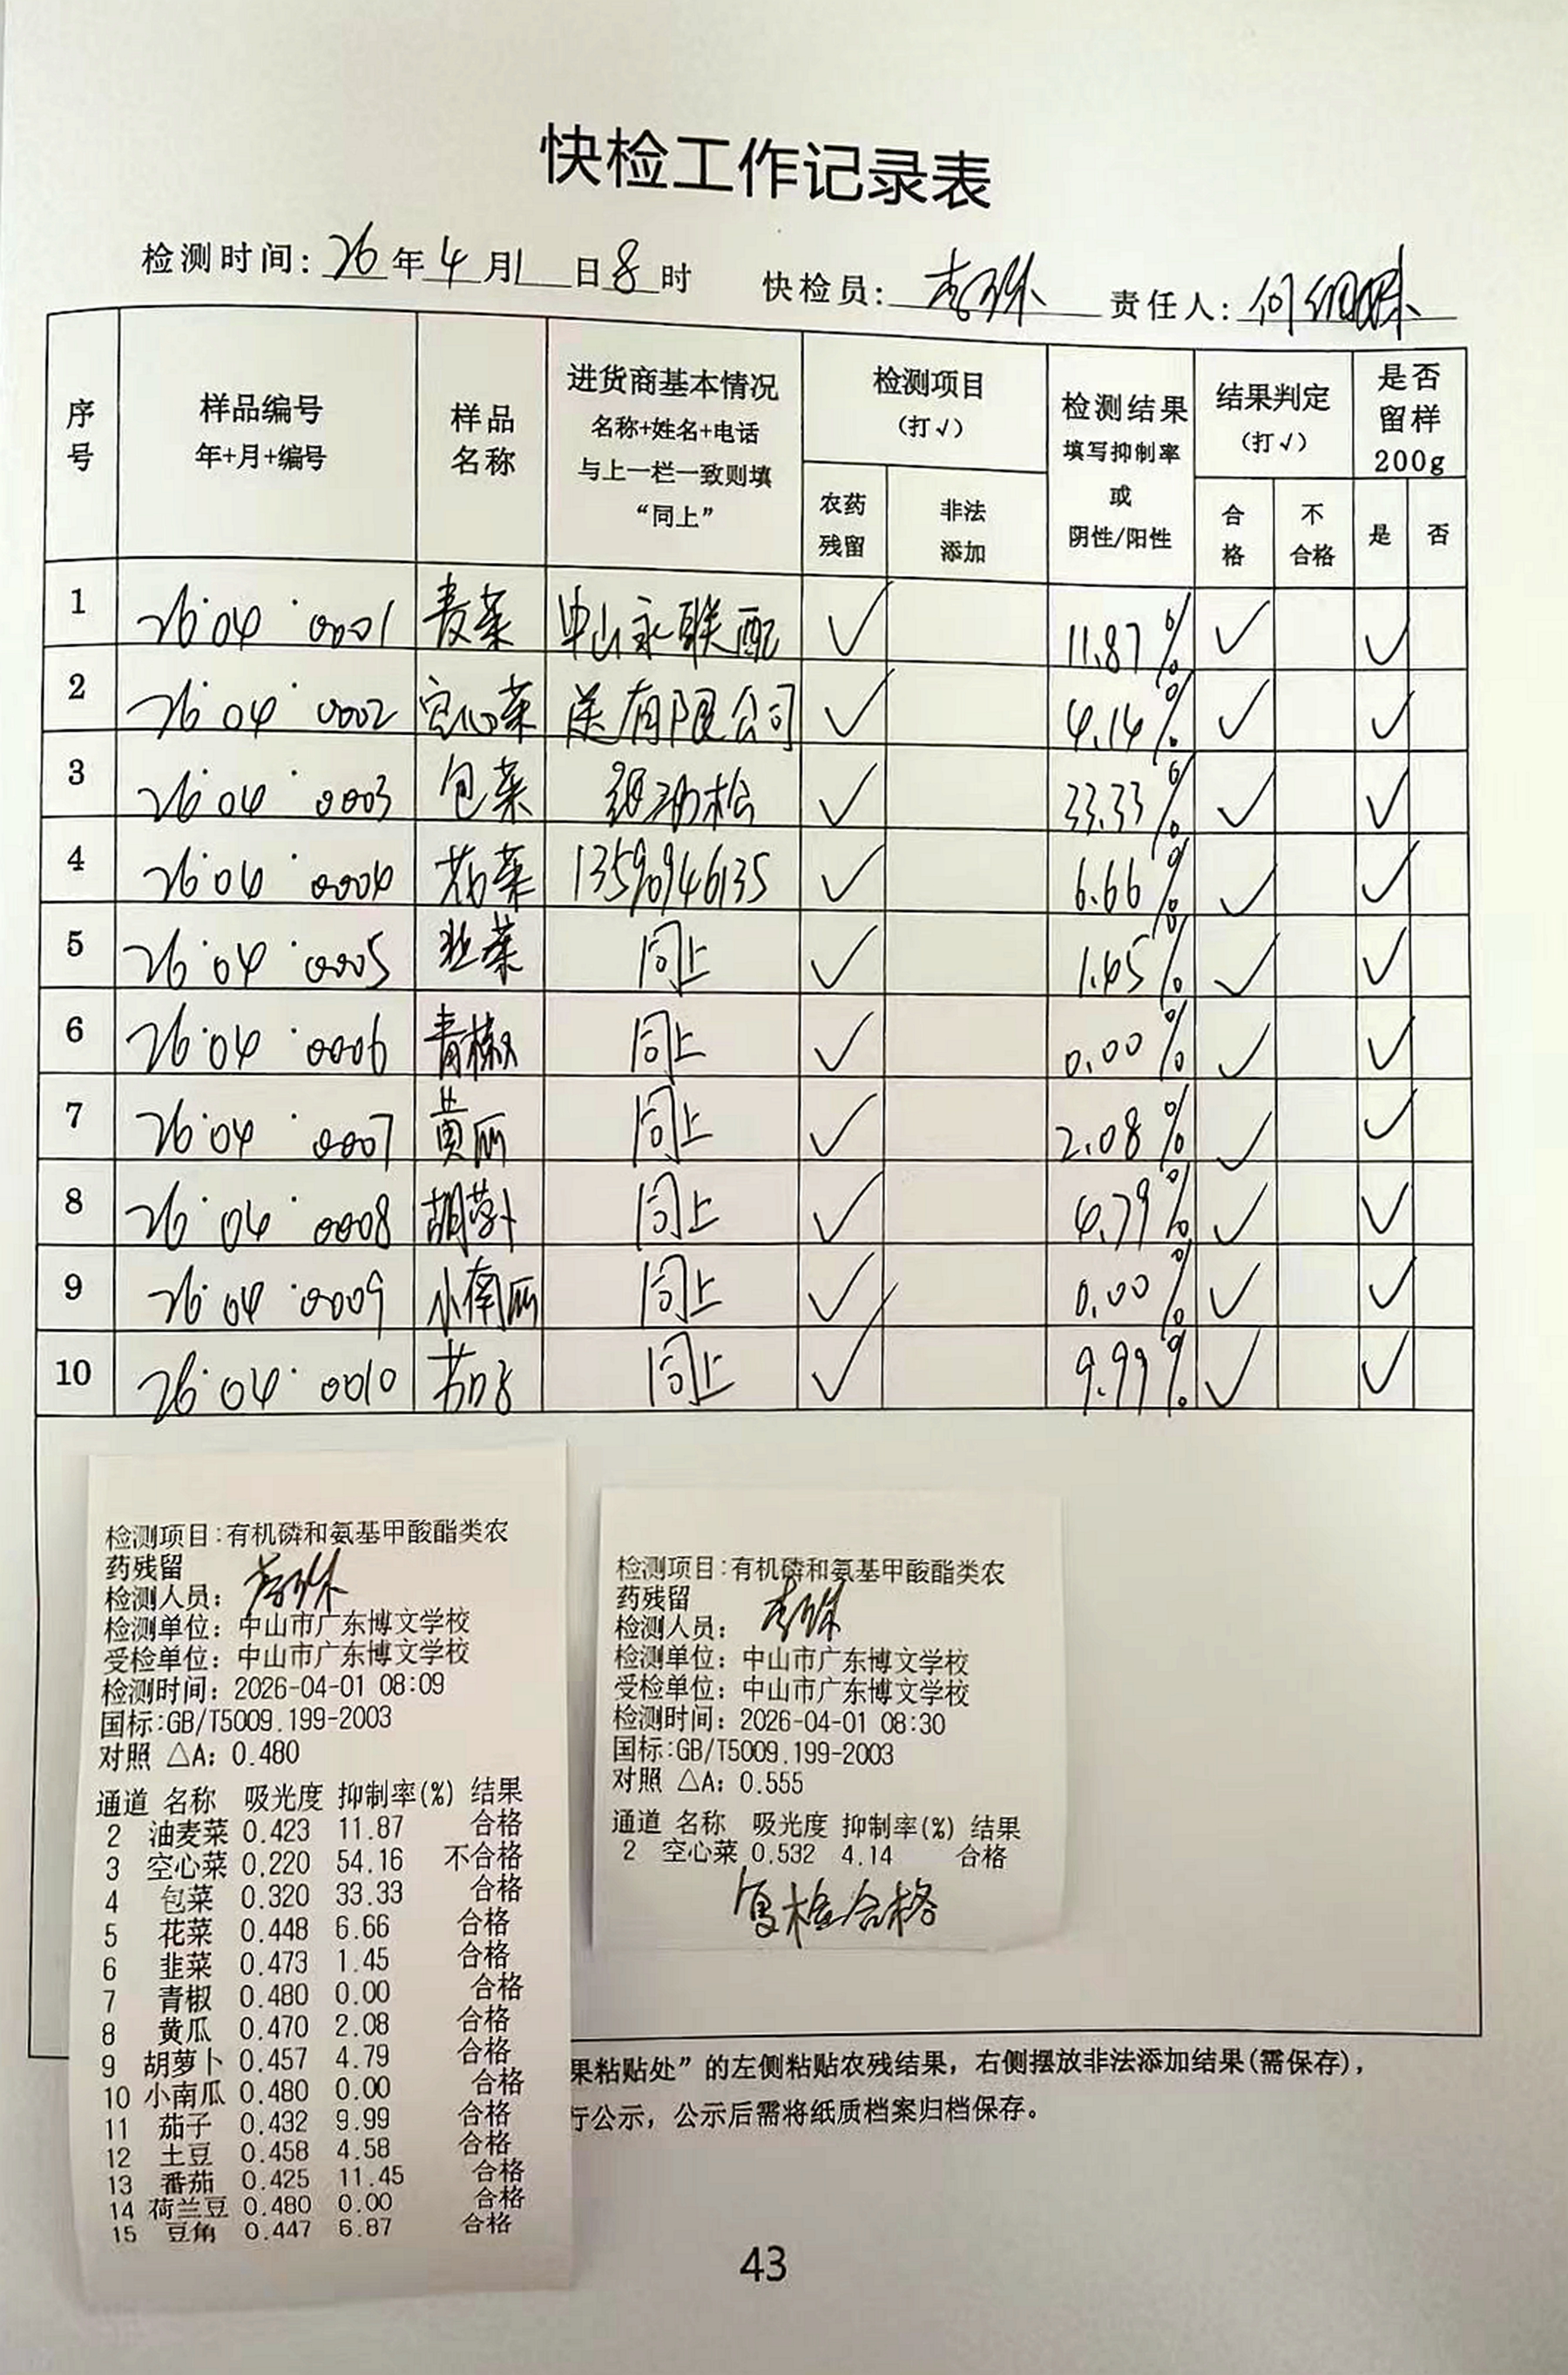 快检工作记录表
检测时间: 26 年 4 月 1 日 8 时 快检员: 责任人:
序号 样品编号 年+月+编号 样品名称 进货商基本情况 名称+姓名+电话 与上一栏一致则填“同上” 检测项目 (打√) 农药残留 非法添加 检测结果 填写抑制率 或 阴性/阳性 结果判定 (打√) 合格 不合格 是否留样 200g 是 否
1 26·04·0001 麦菜 中山永联配 √ 11.87% √ √
2 26·04·0002 空心菜 送有限公司 √ 4.14% √ √
3 26·04·0003 包菜 √ 33.33% √ √
4 26·04·0004 花菜 13590946135 √ 6.66% √ √
5 26·04·0005 韭菜 同上 √ 1.45% √ √
6 26·04·0006 青椒 同上 √ 0.00% √ √
7 26·04·0007 黄瓜 同上 √ 2.08% √ √
8 26·04·0008 胡萝卜 同上 √ 4.79% √ √
9 26·04·0009 小南瓜 同上 √ 0.00% √ √
10 26·04·0010 茄子 同上 √ 9.99% √ √
检测项目:有机磷和氨基甲酸酯类农
药残留
检测人员:
检测单位: 中山市广东博文学校
受检单位: 中山市广东博文学校
检测时间: 2026-04-01 08:09
国标:GB/T5009.199-2003
对照 △A: 0.480
通道 名称 吸光度 抑制率(%) 结果
2 油麦菜 0.423 11.87 合格
3 空心菜 0.220 54.16 不合格
4 包菜 0.320 33.33 合格
5 花菜 0.448 6.66 合格
6 韭菜 0.473 1.45 合格
7 青椒 0.480 0.00 合格
8 黄瓜 0.470 2.08 合格
9 胡萝卜 0.457 4.79 合格
10 小南瓜 0.480 0.00 合格
11 茄子 0.432 9.99 合格
12 土豆 0.458 4.58 合格
13 番茄 0.425 11.45 合格
14 荷兰豆 0.480 0.00 合格
15 豆角 0.447 6.87 合格
检测项目:有机磷和氨基甲酸酯类农
药残留
检测人员:
检测单位: 中山市广东博文学校
受检单位: 中山市广东博文学校
检测时间: 2026-04-01 08:30
国标:GB/T5009.199-2003
对照 △A: 0.555
通道 名称 吸光度 抑制率(%) 结果
2 空心菜 0.532 4.14 合格
复检合格
果粘贴处”的左侧粘贴农残结果，右侧摆放非法添加结果(需保存)，
行公示，公示后需将纸质档案归档保存。
43